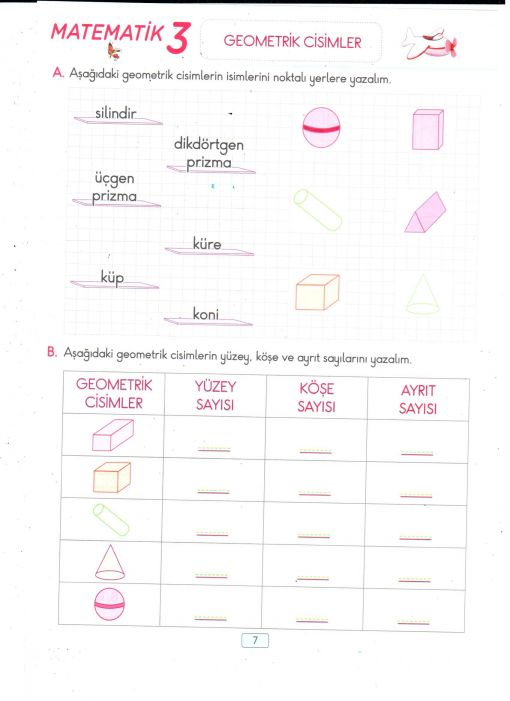 MATEMATİK 3
GEOMETRİK CİSİMLER
A. Aşağıdaki geometrik cisimlerin isimlerini noktalı yerlere yazalım.
silindir
dikdörtgen
prizma
üçgen
prizma
küre
küp
koni
B. Aşağıdaki geometrik cisimlerin yüzey, köşe ve ayrıt sayılarını yazalım.
GEOMETRİK
CİSİMLER
YÜZEY
SAYISI
KÖŞE
SAYISI
AYRIT
SAYISI
7